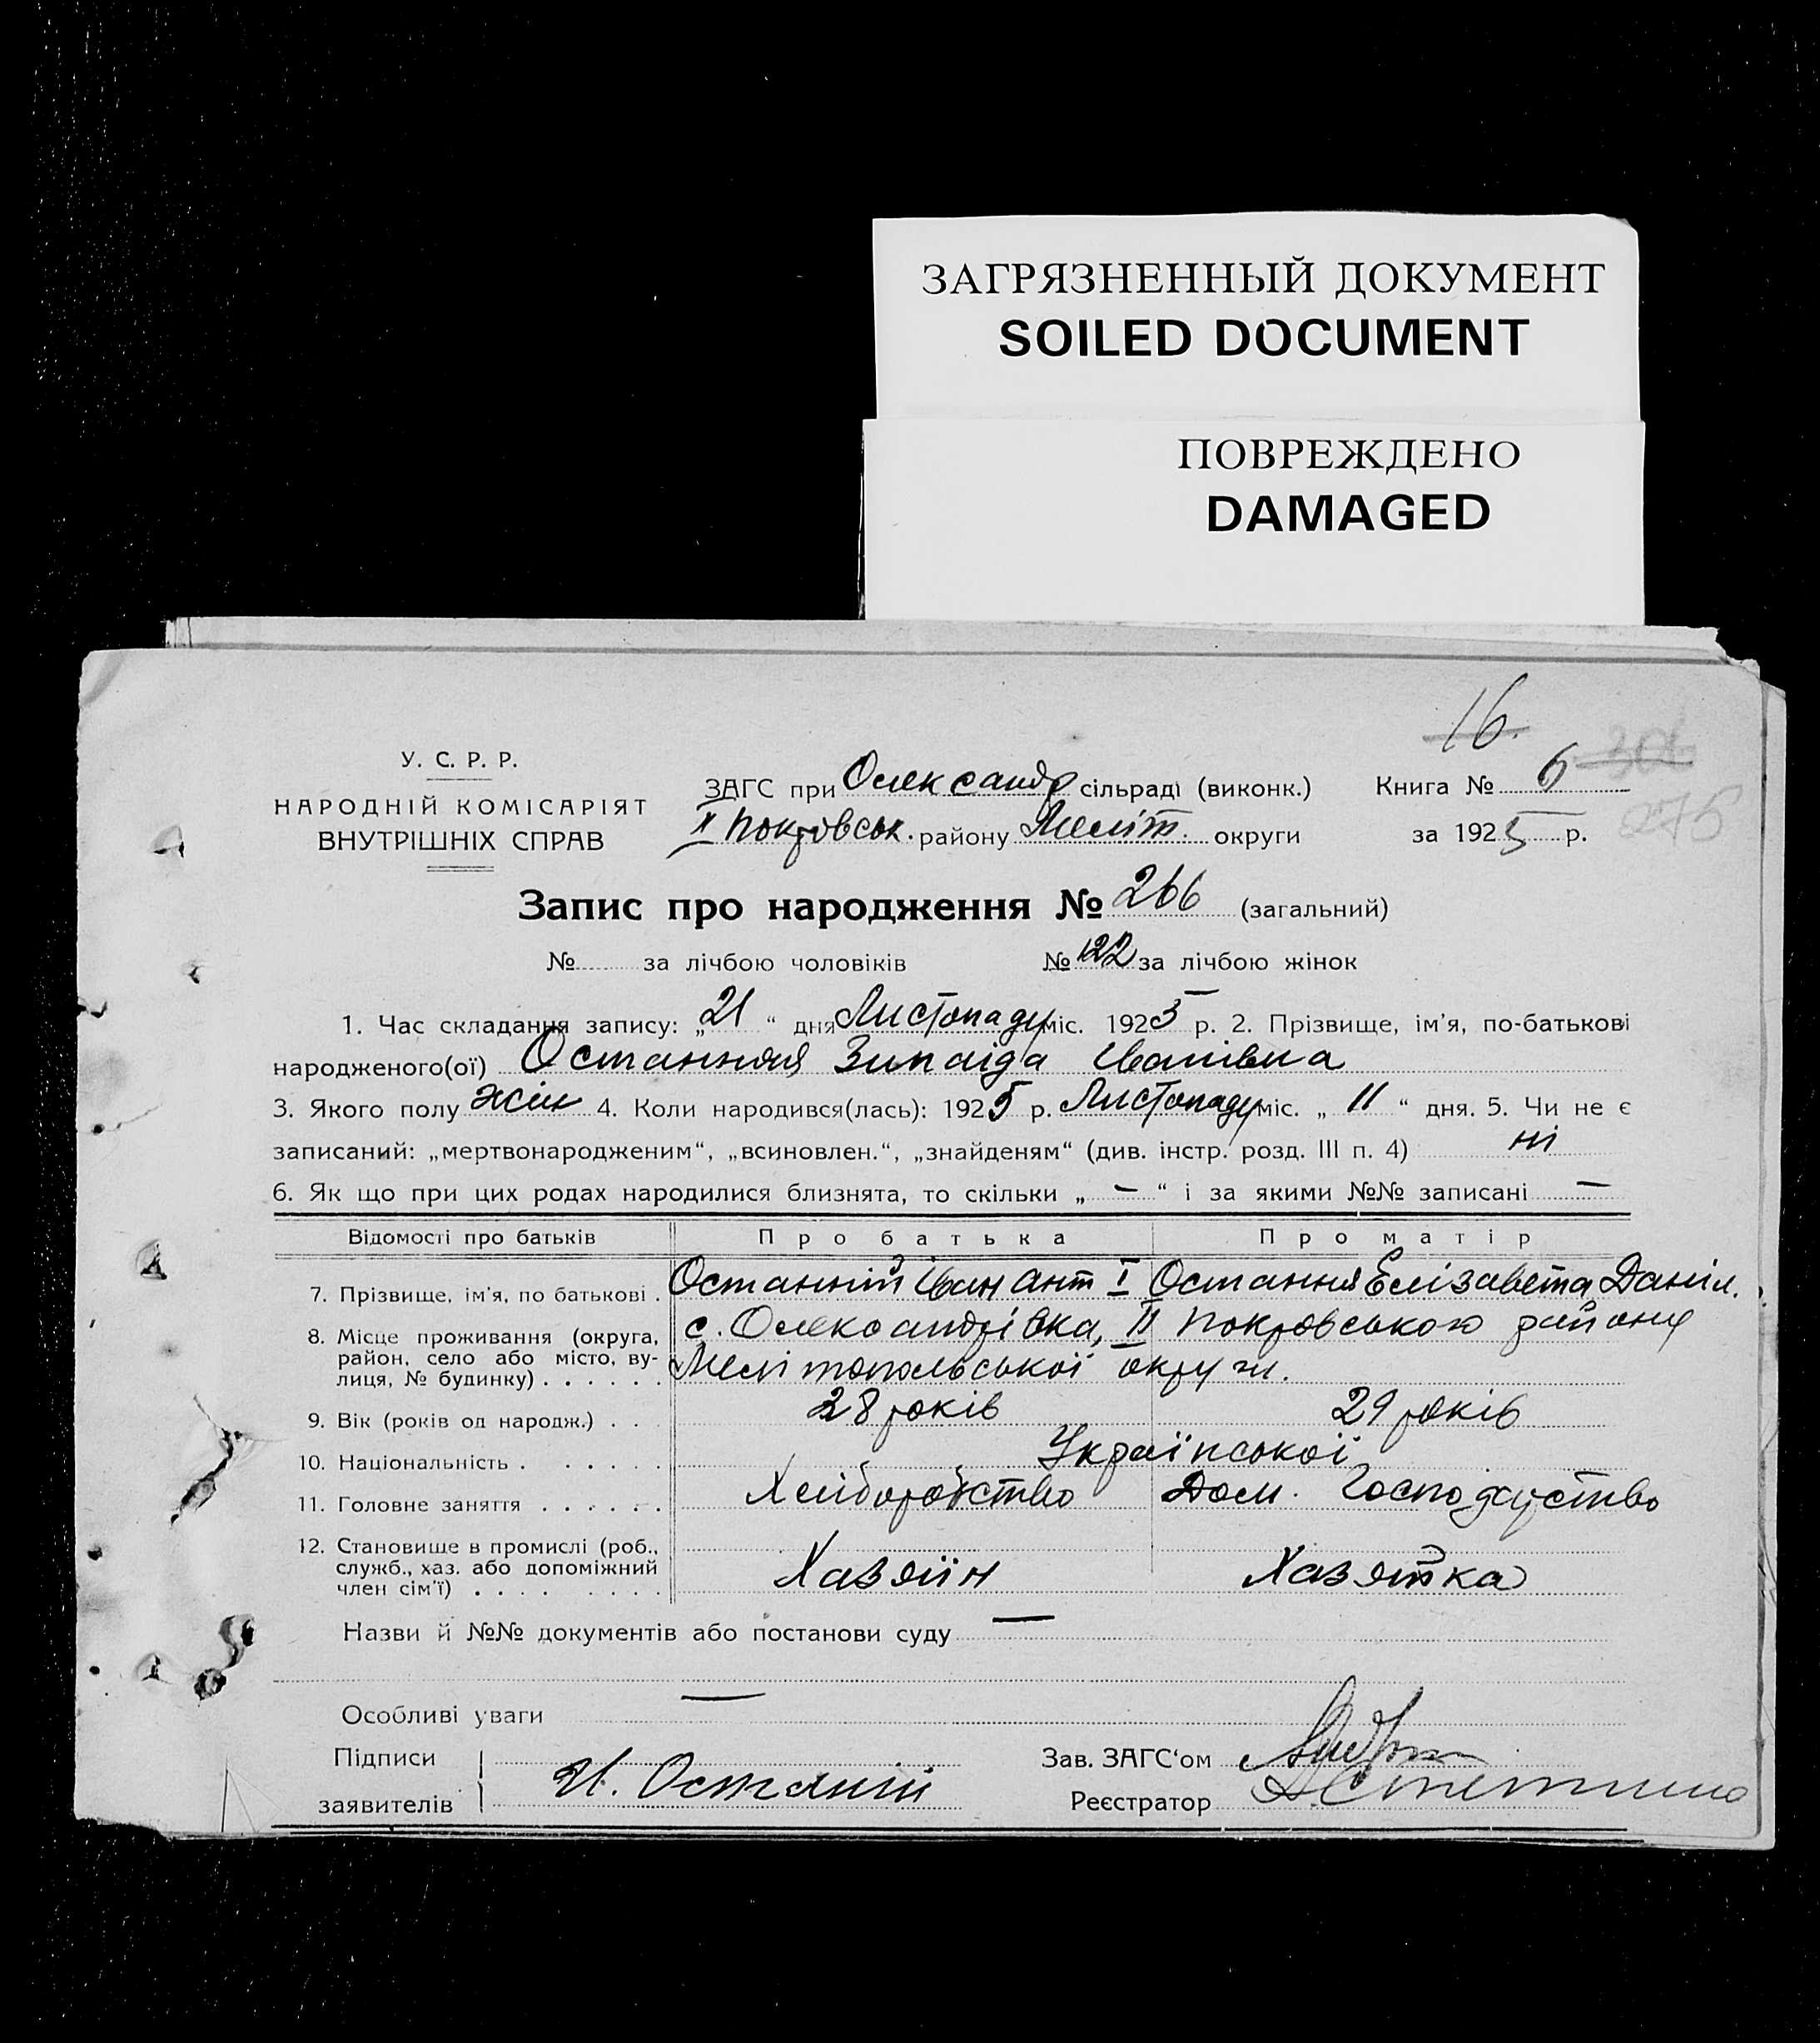 ЗАГРЯЗНЕННЫЙ ДОКУМЕНТ
SOILED DOCUMENT
ПОВРЕЖДЕНО
DAMAGED
16.
У. С. Р. Р.
НАРОДНІЙ КОМІСАРІЯТ
ВНУТРІШНІХ СПРАВ
ЗАГС при Олександр сільраді (виконк.)
II Покровськ. району Меліт. округи
Книга № 6 306
за 1925 р. 275
Запис про народження № 266 (загальний)
№ за лічбою чоловіків № 122 за лічбою жінок
1. Час складання запису: „21“ дня Листопаду міс. 1925 р. 2. Прізвище, ім'я, по-батькові
народженого(ої) Останняя Зинаіда Іванівна
3. Якого полу жін 4. Коли народився(лась): 1925 р. Листопаду міс. „11“ дня. 5. Чи не є
записаний: „мертвонародженим“, „всиновлен.“, „знайденям“ (див. інстр. розд. III п. 4) ні
6. Як що при цих родах народилися близнята, то скільки „—“ і за якими №№ записані —
Відомості про батьків Про батька Про матір
7. Прізвище, ім'я, по батькові. Останній Іван Ант I Остання Елізавета Даніл.
8. Місце проживання (округа, с. Олександрівка, II Покровського району
район, село або місто, ву- Мелітопольської округи.
лиця, № будинку) . . . . . .
9. Вік (років од народж.) . . 28 років 29 років
10. Національність . . . . . . Української
11. Головне заняття . . . . . . Хліборобство Дом. Господарство
12. Становище в промислі (роб.,
служб., хаз. або допоміжний Хазяїн Хазяйка
член сім'ї) . . . . . . . .
Назви й №№ документів або постанови суду —
Особливі уваги —
Підписи
заявителів И. Останій
Зав. ЗАГС'ом
Реєстратор